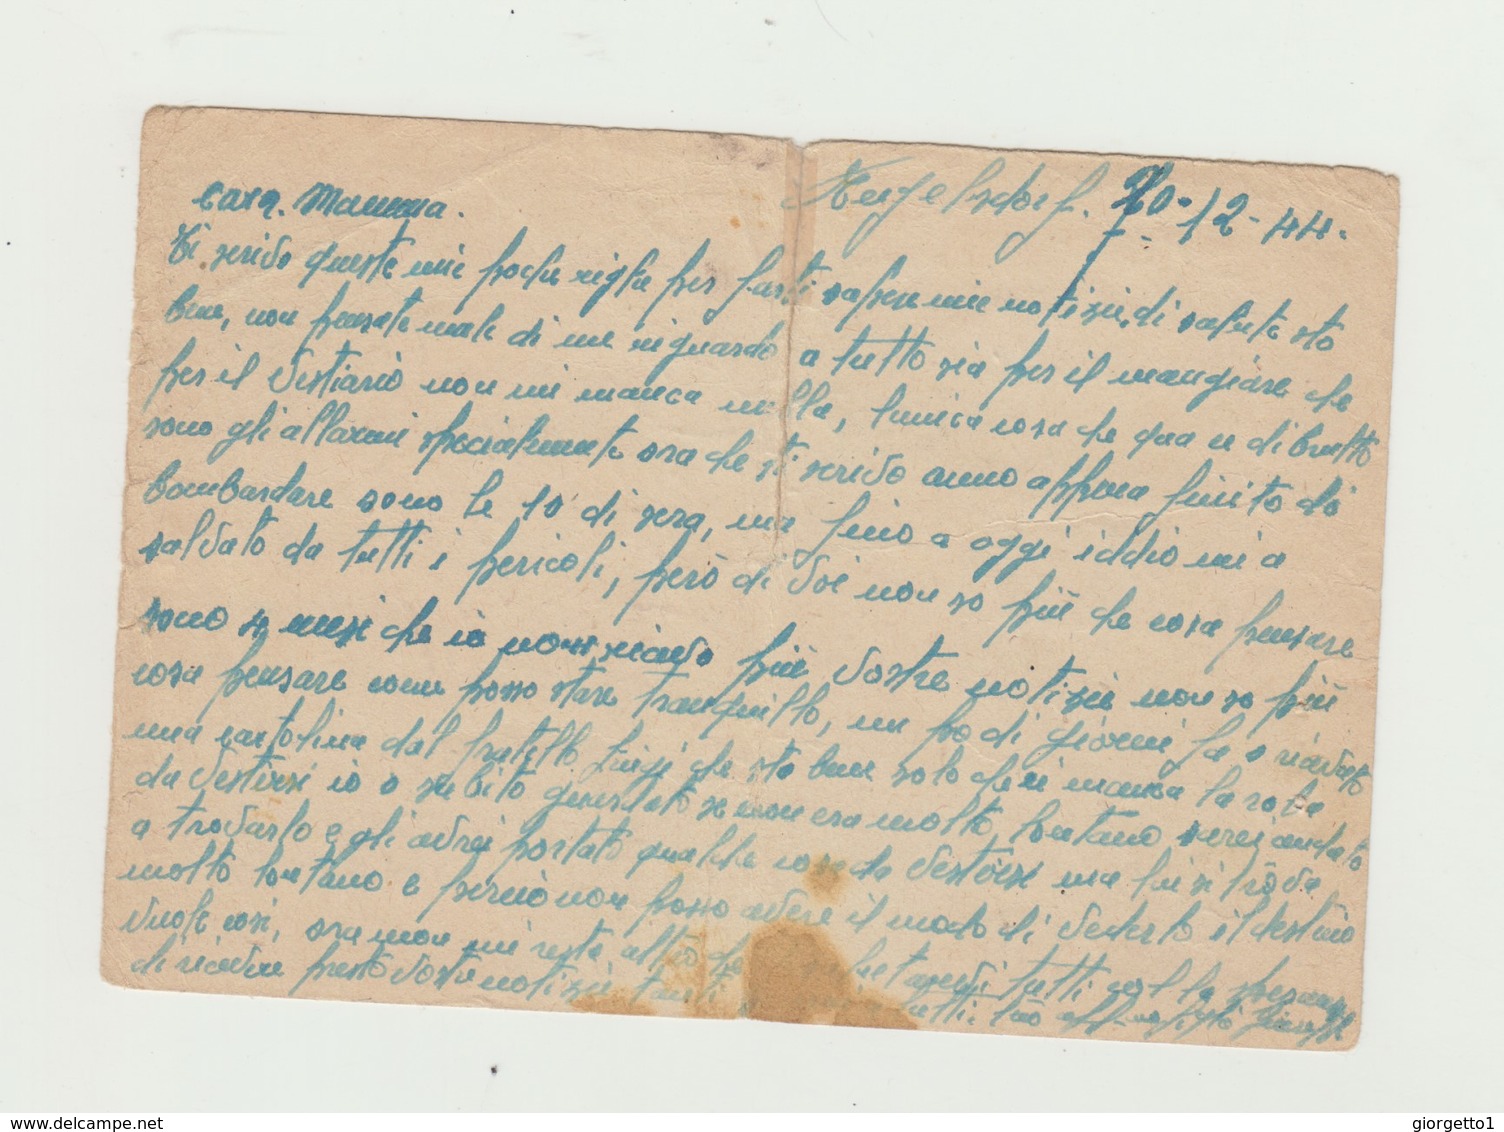 Engelsdorf. 20-12-44.
Cara. Mamma.
Ti scrivo queste mie poche righe per farti sapere mie notizie, di salute sto
bene, non pensate male di me riguardo a tutto sia per il mangiare che
per il vestiario non mi manca nulla, lunica cosa che qua ce di brutto
sono gli allarmi specialmente ora che ti scrivo anno appena finito di
bombardare sono le 10 di sera, ma fino a oggi iddio mi a
salvato da tutti i pericoli, però di voi non so più che cosa pensare
sono 4 mesi che io non ricevo più vostre notizie non so più
cosa pensare come posso stare tranquillo, un po di giorni fa o ricevuto
una cartolina dal fratello Luigi che sta bene solo che ci manca la roba
da vestirsi io o subito guardato se non era molto lontano serei andato
a trovarlo e gli avrei portato qualche cosa da vestirsi ma lui si trova
molto lontano e perciò non posso avere il modo di vederlo il destino
vuole così, ora non mi resta altro che salutarvi tutti col la speranza
di ricevere presto vostre notizie tanti a tutti. tuo aff.